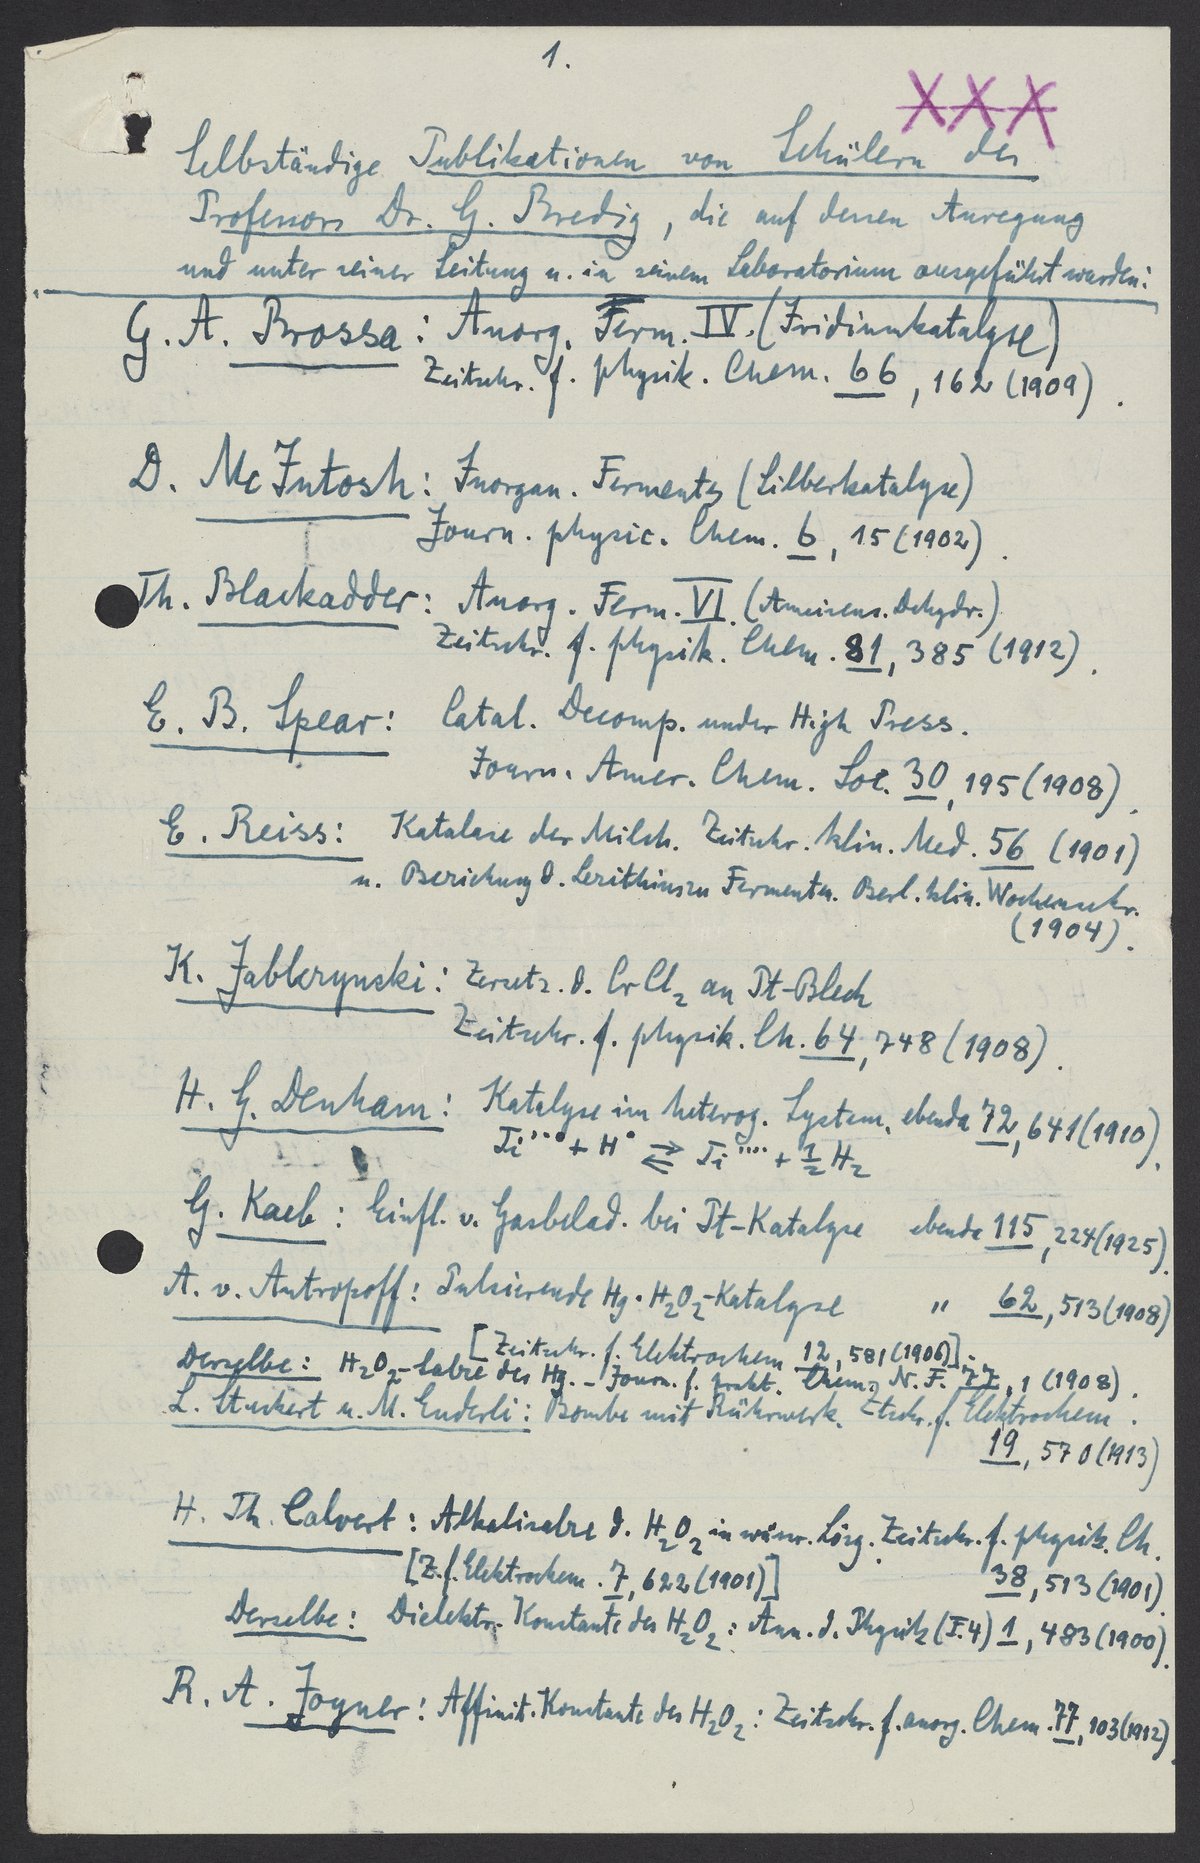 1.
XXX
Selbständige Publikationen von Schülern des
Professors Dr. G. Bredig, die auf dessen Anregung
und unter seiner Leitung u. in seinem Laboratorium ausgeführt wurden:
G. A. Brossa: Anorg. Ferm. IV. (Iridiumkatalyse)
Zeitschr. f. physik. Chem. 66, 162 (1909).
D. McIntosh: Inorgan. Ferments (Silberkatalyse)
Journ. physic. Chem. 6, 15 (1902).
Th. Blackadder: Anorg. Ferm. VI. (Ameisens. Dehydr.)
Zeitschr. f. physik. Chem. 81, 385 (1912).
E. B. Spear: Catal. Decomp. under High Press.
Journ. Amer. Chem. Soc. 30, 195 (1908).
E. Reiss: Katalase der Milch. Zeitschr. klin. Med. 56 (1901)
u. Beziehung d. Lezithins zu Fermenten. Berl. klin. Wochenschr.
(1904).
K. Jablczynski: Zersetz. d. CrCl₂ an Pt-Blech
Zeitschr. f. physik. Ch. 64, 748 (1908).
H. G. Denham: Katalyse im heterog. System, ebenda 72, 641 (1910).
Ti··· + H· ⇄ Ti···· + ½ H₂
G. Kaeb: Einfl. v. Gasbelad. bei Pt-Katalyse ebenda 115, 224 (1925).
A. v. Antropoff: Pulsierende Hg·H₂O₂-Katalyse " 62, 513 (1908)
[Zeitschr. f. Elektrochem 12, 581 (1906)].
Derselbe: H₂O₂-Salze des Hg. - Journ. f. prakt. Chem. N. F. 77, 1 (1908).
L. Stuckert u. M. Enderli: Bombe mit Rührwerk. Ztschr. f. Elektrochem.
19, 570 (1913)
H. Th. Calvert: Alkalisalze d. H₂O₂ in wässr. Lösg. Zeitschr. f. physik. Ch.
[Z. f. Elektrochem. 7, 622 (1901)] 38, 513 (1901).
Derselbe: Dielektr. Konstante des H₂O₂: Ann. d. Physik (F. 4) 1, 483 (1900).
R. A. Joyner: Affinit. Konstante des H₂O₂: Zeitschr. f. anorg. Chem. 77, 103 (1912)